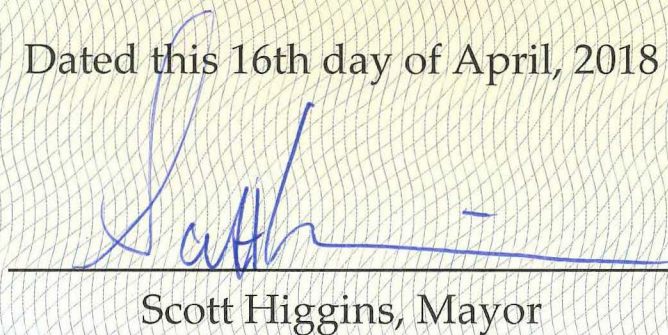 Dated this 16th day of April, 2018
Scott Higgins, Mayor